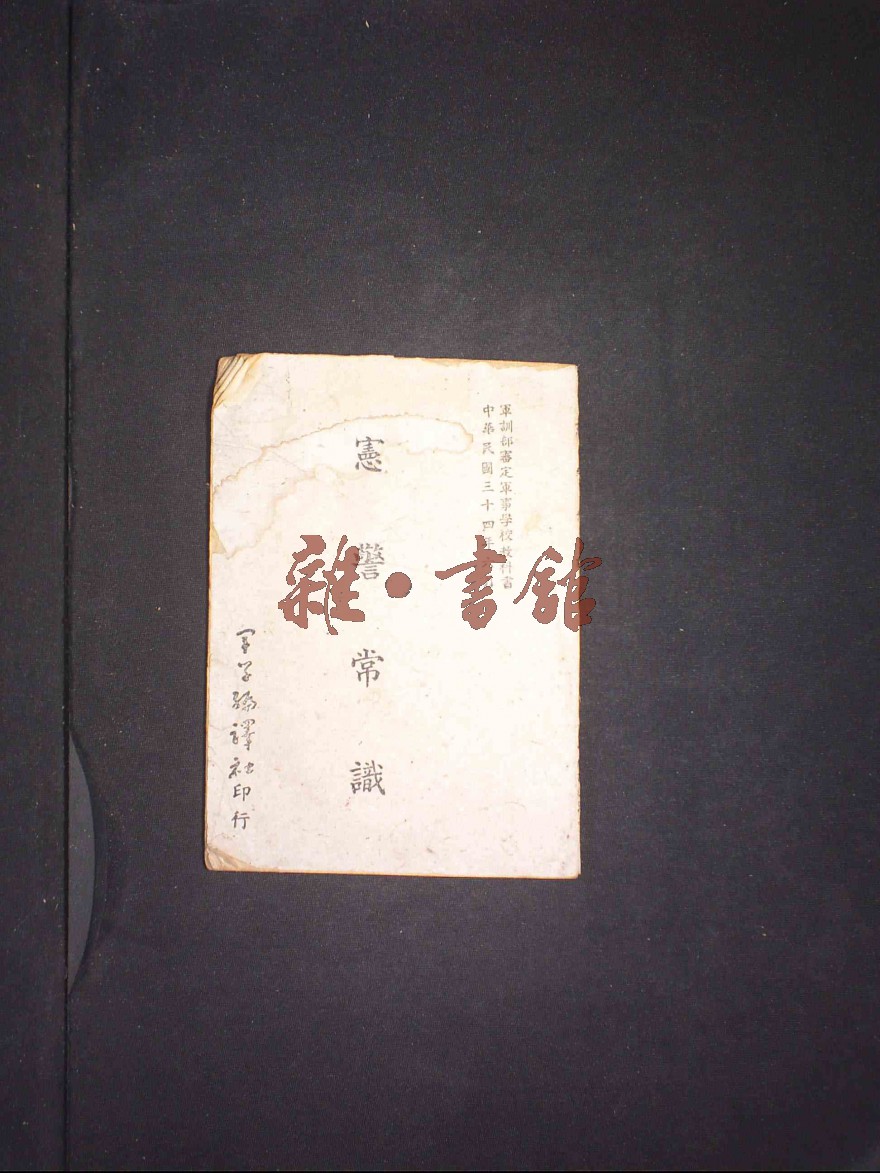 軍訓部審定軍事學校教科書
中華民國三十四年
憲警常識
軍学編譯社印行
雜·書館